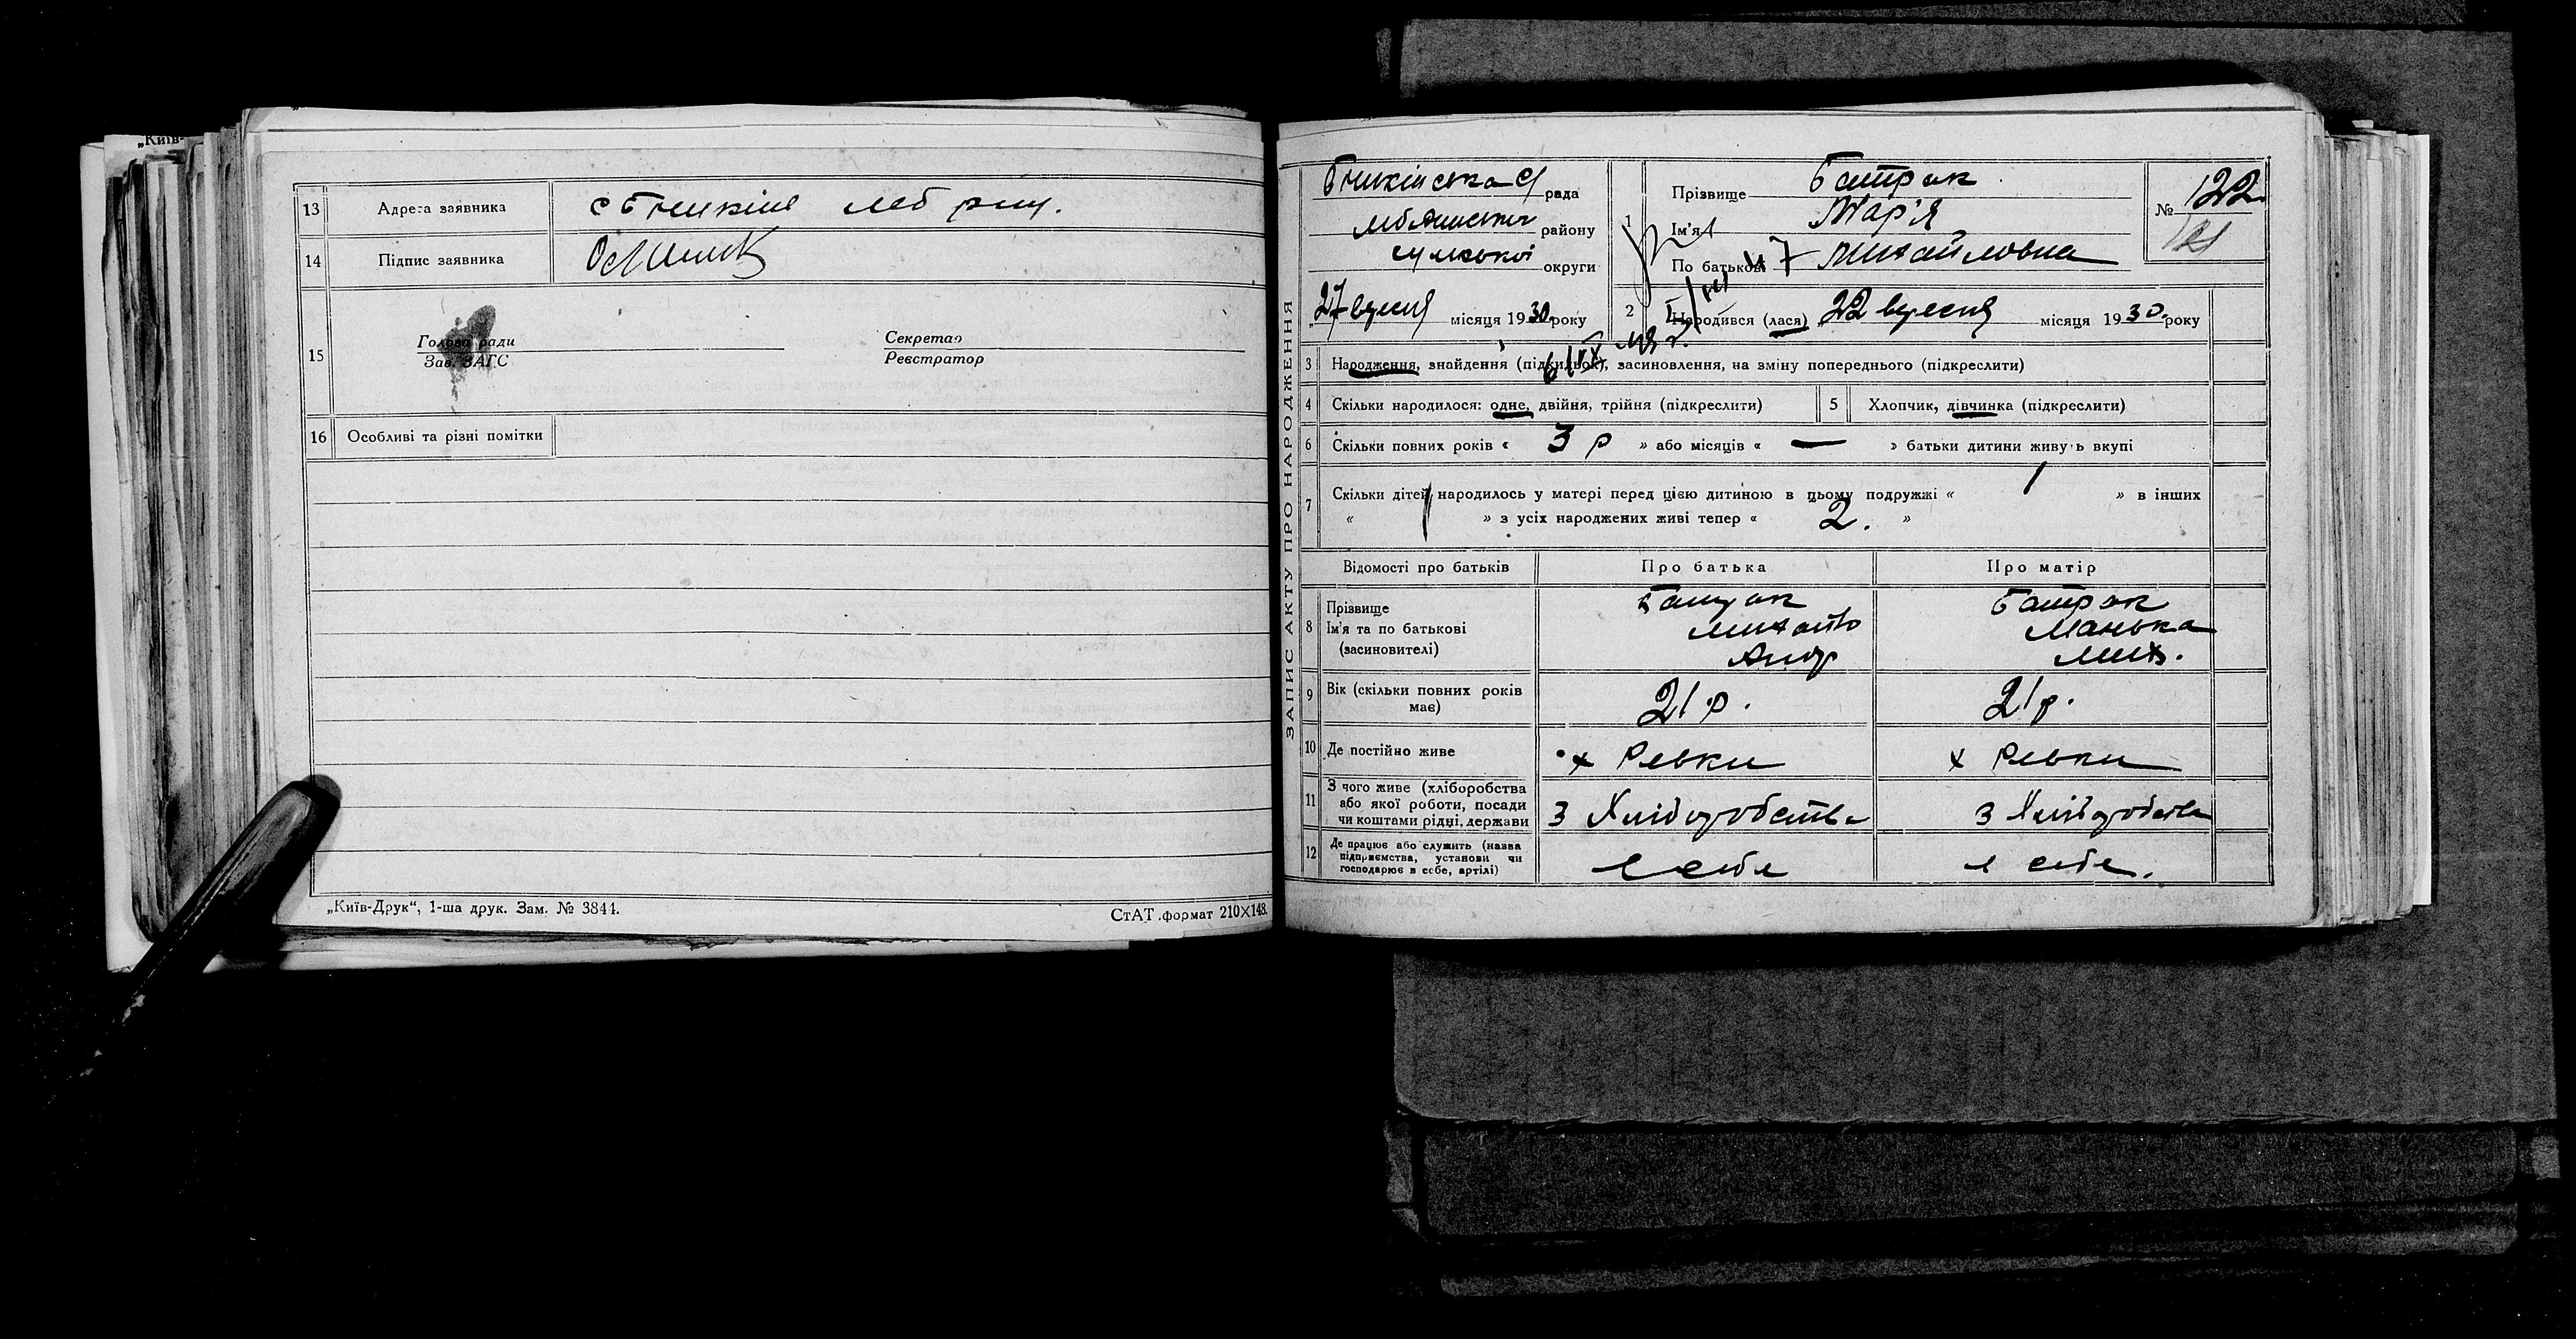 „Київ-
13 Адреса заявника с Бишкінь Леб рну.
14 Підпис заявника
15 Голова ради Секретар
Зав. ЗАГС Реєстратор
16 Особливі та різні помітки
„Київ-Друк“, 1-ша друк. Зам. № 3844. СтАТ.формат 210X148.
ЗАПИС АКТУ ПРО НАРОДЖЕННЯ
Бишкінська с/рада
району
Сумської округи
27 вересня місяця 1930 року
1 Прізвище Батрак
Ім'я Мар'я
По батькові Михайловна
№ 122
121
2 Народився (лася) „22 вересня місяця 1930 року
3 Народження, знайдення (підкидьок), засиновлення, на зміну попереднього (підкреслити)
4 Скільки народилося: одне, двійня, трійня (підкреслити) 5 Хлопчик, дівчинка (підкреслити)
6 Скільки повних років « 3 р » або місяців « — » батьки дитини живуть вкупі
7 Скільки дітей народилось у матері перед цією дитиною в цьому подружжі « 1 » в інших
« / » з усіх народжених живі тепер « 2. »
Відомості про батьків Про батька Про матір
8 Прізвище Батрак Батрак
Ім'я та по батькові Михайло Манька
(засиновителі) Андр Мих.
9 Вік (скільки повних років має) 21 р. 21 р.
10 Де постійно живе х Ревки х Ревки
11 З чого живе (хліборобства або якої роботи, посади чи коштами рідні, держави З Хліборобства З Хліборобства
12 Де працює або служить (назва підприємства, установи чи господарює в себе, артілі) в себе в себе.